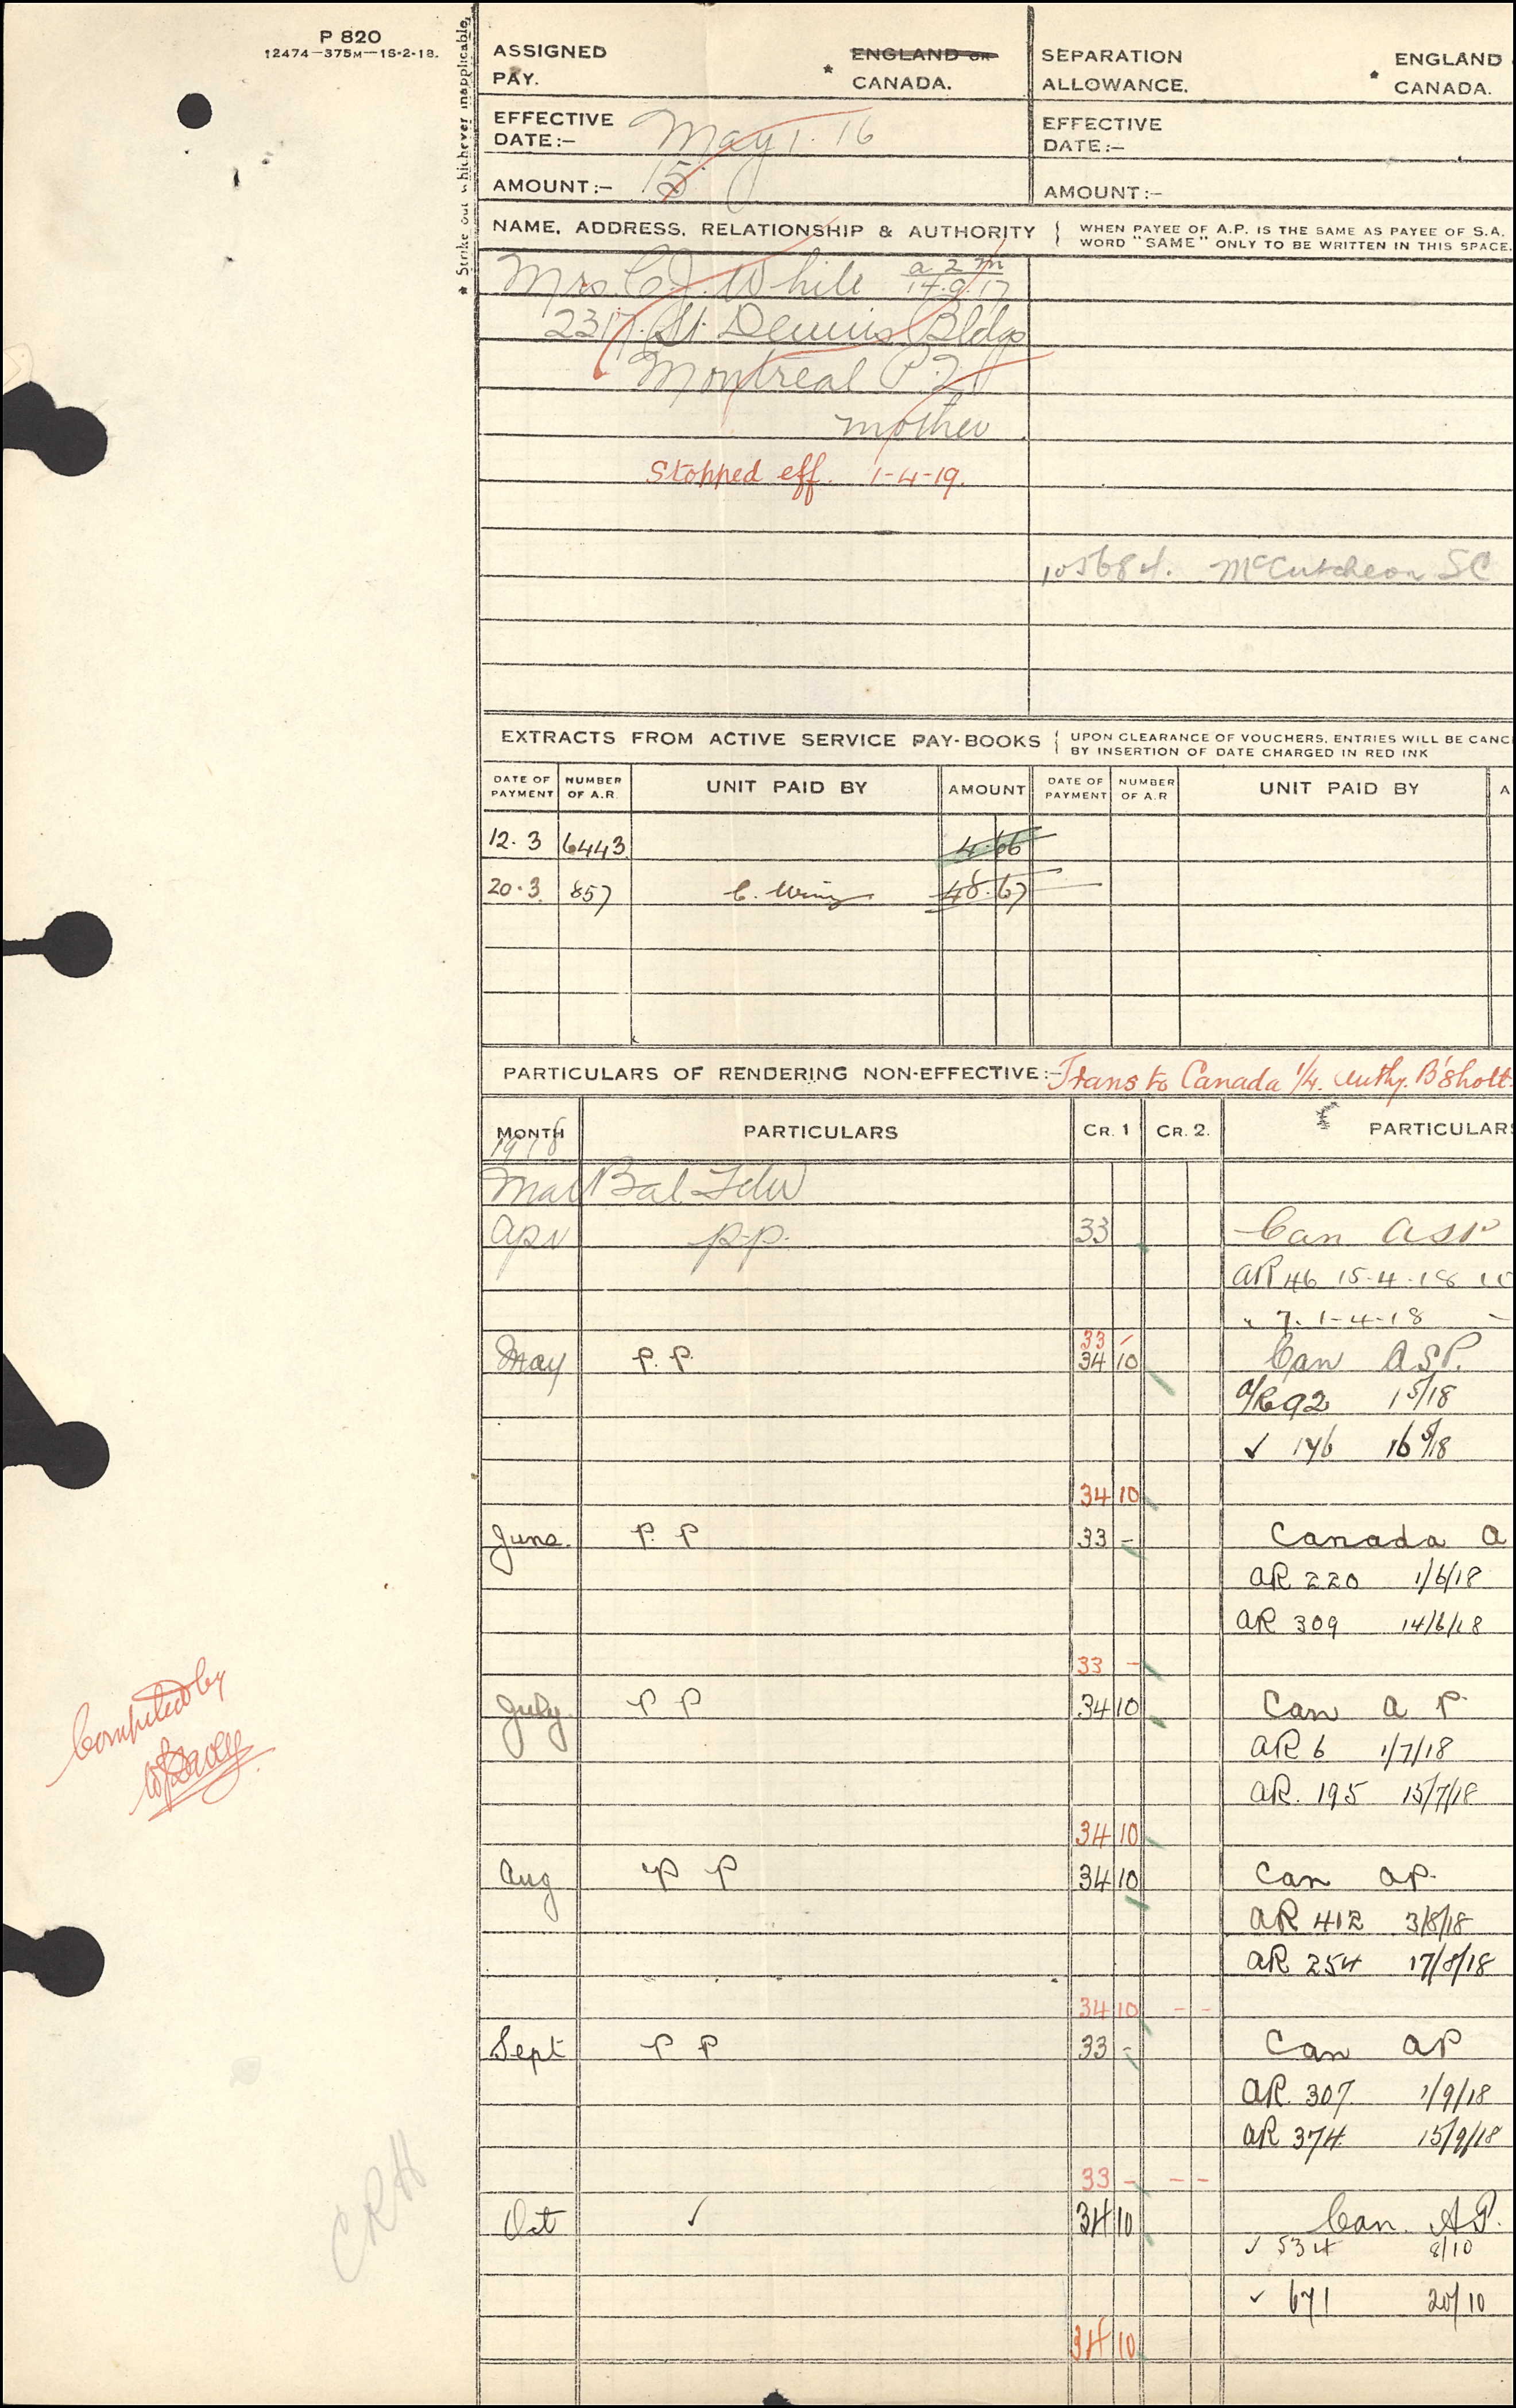 P 820
12474—375M—16-2-18.
* Strike out whichever inapplicable.
ASSIGNED PAY. * ENGLAND OR CANADA.
SEPARATION ALLOWANCE. * ENGLAND CANADA.
EFFECTIVE DATE:- May 1. 16
EFFECTIVE DATE:-
AMOUNT:- 15
AMOUNT:-
NAME, ADDRESS, RELATIONSHIP & AUTHORITY
WHEN PAYEE OF A.P. IS THE SAME AS PAYEE OF S.A.
WORD "SAME" ONLY TO BE WRITTEN IN THIS SPACE.
Mrs. C. J. White a 2 m 14.9.17
2317 St. Dennis Bldgs
Montreal P.Q
mother
Stopped eff. 1-4-19.
105684. McCutcheon SC
EXTRACTS FROM ACTIVE SERVICE PAY-BOOKS
UPON CLEARANCE OF VOUCHERS, ENTRIES WILL BE CANC
BY INSERTION OF DATE CHARGED IN RED INK
DATE OF PAYMENT NUMBER OF A.R. UNIT PAID BY AMOUNT DATE OF PAYMENT NUMBER OF A.R UNIT PAID BY A
12.3 6443 4.66
20.3 857 C. Wing 48.67
PARTICULARS OF RENDERING NON-EFFECTIVE:- Trans to Canada 1/4. Authy. B'sholt
MONTH PARTICULARS CR. 1 CR. 2. PARTICULARS
1918
Mar Bal Fdw
Apr p.p. 33 Can ASP
AR 46 15-4-18
" 7. 1-4-18 -
33 -
May P. P. 34 10 Can ASP.
A/R 92 1 5/18
✓ 146 16 5/18
34 10
June. P. P 33 - Canada A
AR 220 1/6/18
AR 309 14/6/18
33 -
July P P 34 10 Can A P
AR 6 1/7/18
AR. 195 15/7/18
34 10
Computed by
Aug P P 34 10 Can AP.
AR 412 3/8/18
AR 254 17/8/18
34 10 - -
Sept P P 33 - Can AP
AR. 307. 1/9/18
AR 374. 15/9/18
33 - - -
CRH
Oct ✓ 34 10 Can. A.P.
✓ 534 8/10
✓ 671 20/10
34 10